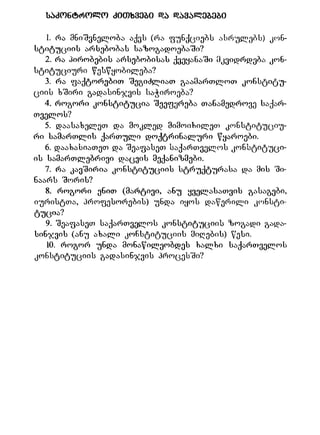 საკონტროლო კითხვები და დავალებები
1. რა მნიშვნელობა აქვს (რა ფუნქციებს ასრულებს) კონ-
სტიტუციის არსებობას საზოგადოებაში?
2. რა პირობების არსებობისას ქვეყანაში მკვიდრდება კონ-
სტიტუციური წესწყობილება?
3. რა ფაქტორებით შეგიძლიათ გაამართლოთ კონსტიტუ-
ციის ხშირი გადასინჯვის საჭიროება?
4. როგორი კონსტიტუცია შეეფერება თანამედროვე საქარ-
თველოს?
5. დაასახელეთ და მოკლედ მიმოიხილეთ კონსტიტუციუ-
რი სამართლის ქართული დოქტრინალური წყაროები.
6. დაახასიათეთ და შეაფასეთ საქართველოს კონსტიტუცი-
ის სამართლებრივი დაცვის მექანიზმები.
7. რა კავშირია კონსტიტუციის სტრუქტურასა და მის ში-
ნაარს შორის?
8. როგორი ენით (მარტივი, ანუ ყველასათვის გასაგები,
იურისტთა, პროფესორების) უნდა იყოს დაწერილი კონსტი-
ტუცია?
9. შეაფასეთ საქართველოს კონსტიტუციის ზოგადი გადა-
სინჯვის (ანუ ახალი კონსტიტუციის მიღების) წესი.
10. როგორ უნდა მონაწილეობდეს ხალხი საქართველოს
კონსტიტუციის გადასინჯვის პროცესში?